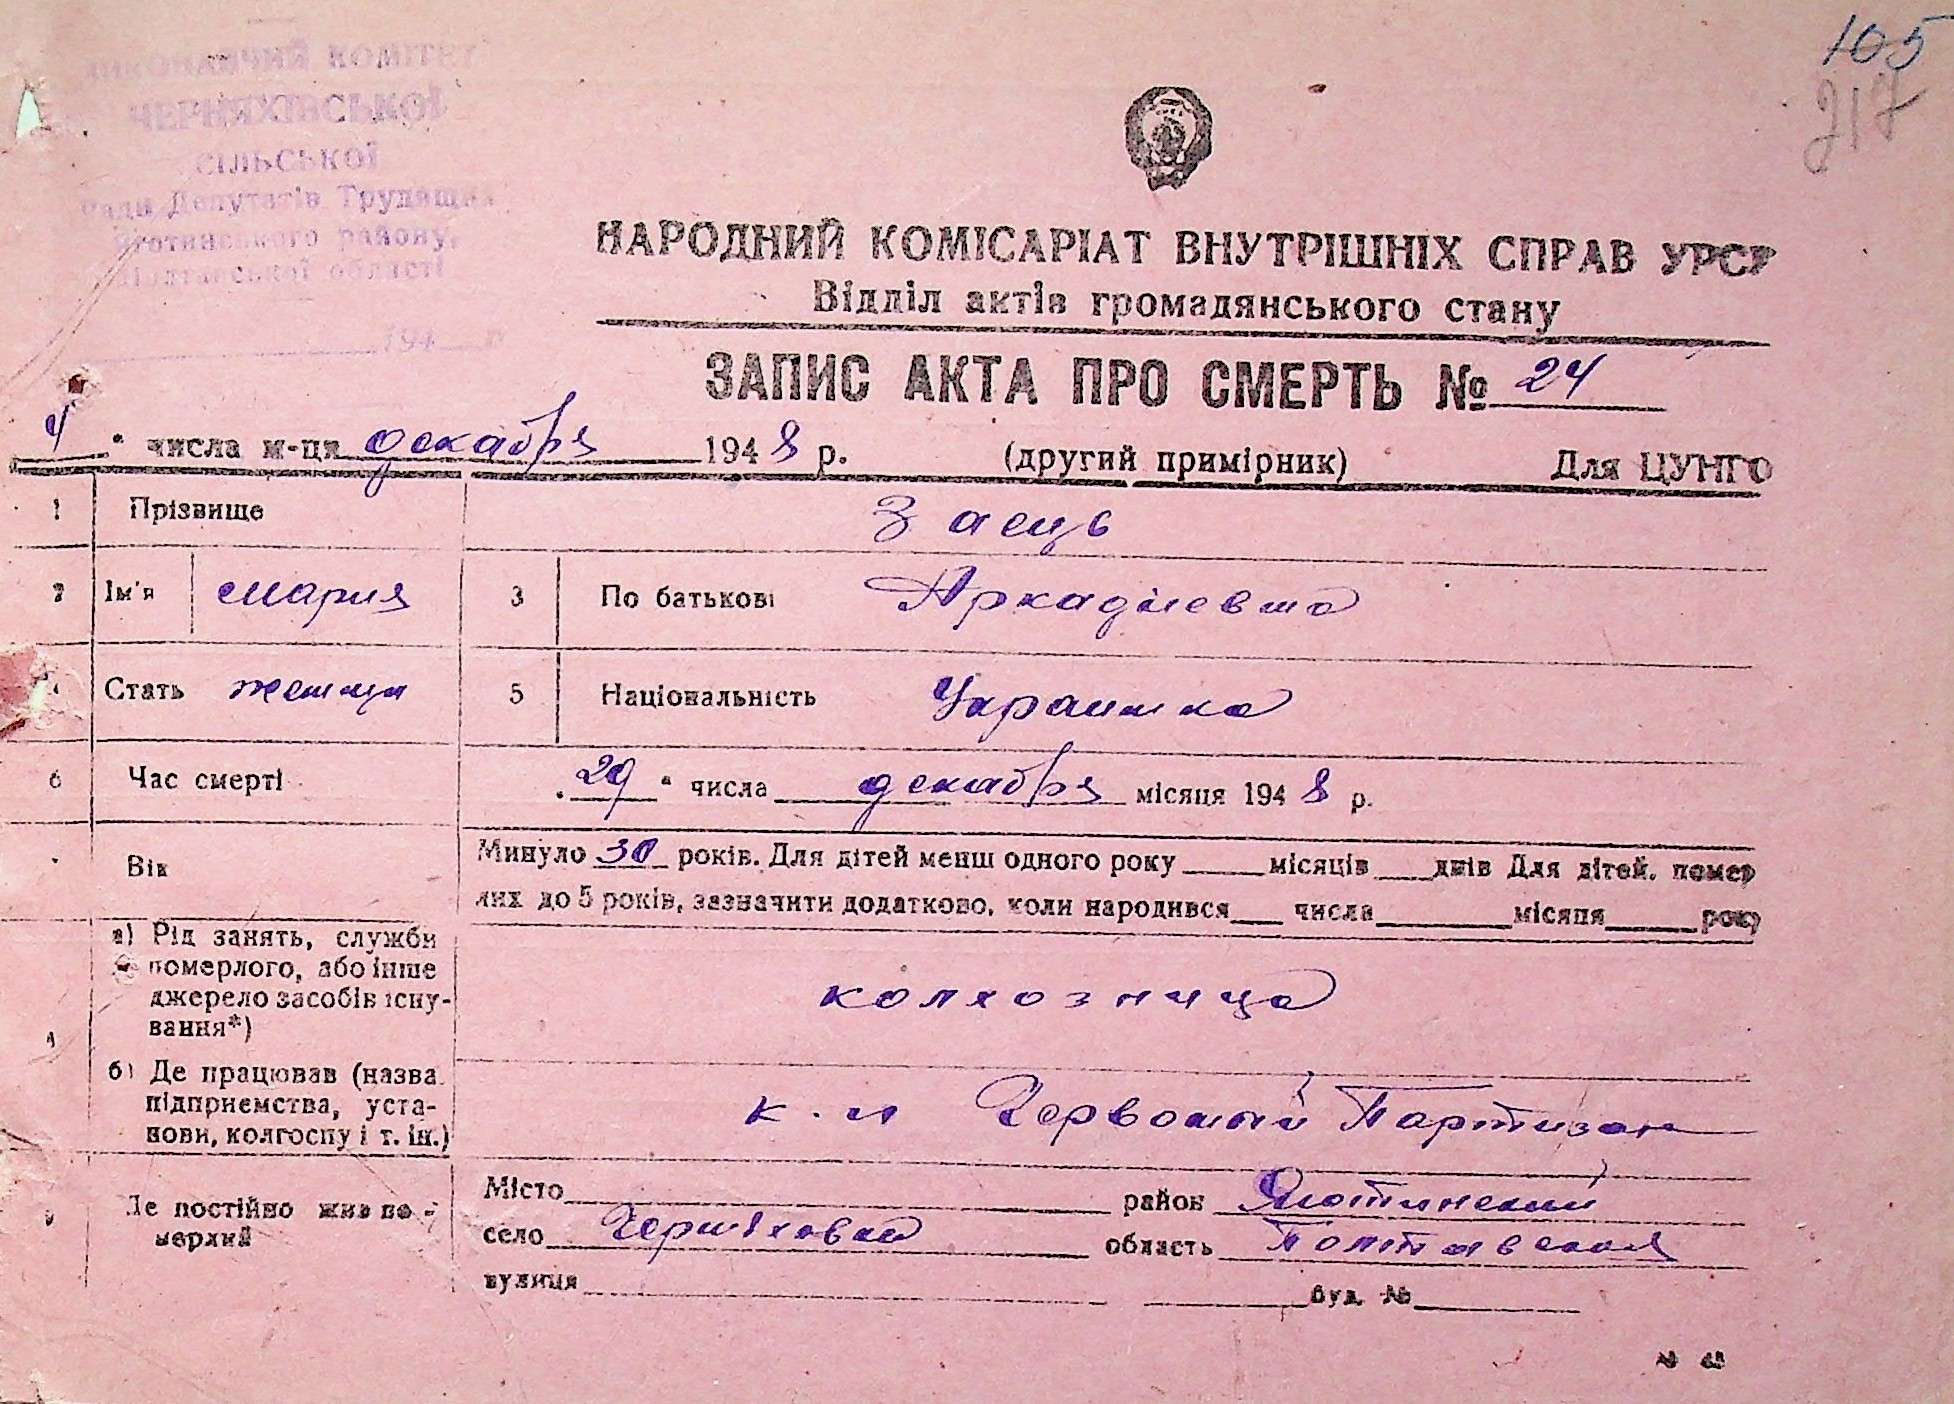 105
217
ВИКОНАВЧИЙ КОМІТЕТ
ЧЕРНЯХІВСЬКОЇ
СІЛЬСЬКОЇ
Ради Депутатів Трудящих
Яготинського району,
Полтавської області
194 р
НАРОДНИЙ КОМІСАРІАТ ВНУТРІШНІХ СПРАВ УРСР
Відділ актів громадянського стану
ЗАПИС АКТА ПРО СМЕРТЬ № 24
4 " числа м-ця декабря 1948 р. (другий примірник) Для ЦУНГО
1 Прізвище Заець
2 Ім'я мария 3 По батькові Аркадіевна
4 Стать женщ 5 Національність Украинка
6 Час смерті "29" числа декабря місяця 1948 р.
Вік Минуло 30 років. Для дітей менш одного року ___ місяців ___ днів Для дітей, помер
лих до 5 років, зазначити додатково, коли народився ___ числа ___ місяця ___ року
а) Рід занять, служби
померлого, або інше
джерело засобів існу-
вання*)
колхозница
б) Де працював (назва
підприємства, уста-
нови, колгоспу і т. ін.)
к-п Червоный Партизан
9 Де постійно жив по-
мерлий
Місто ___ район Яготинский
село Черняховка область Полтавская
вулиця ___ буд. № ___